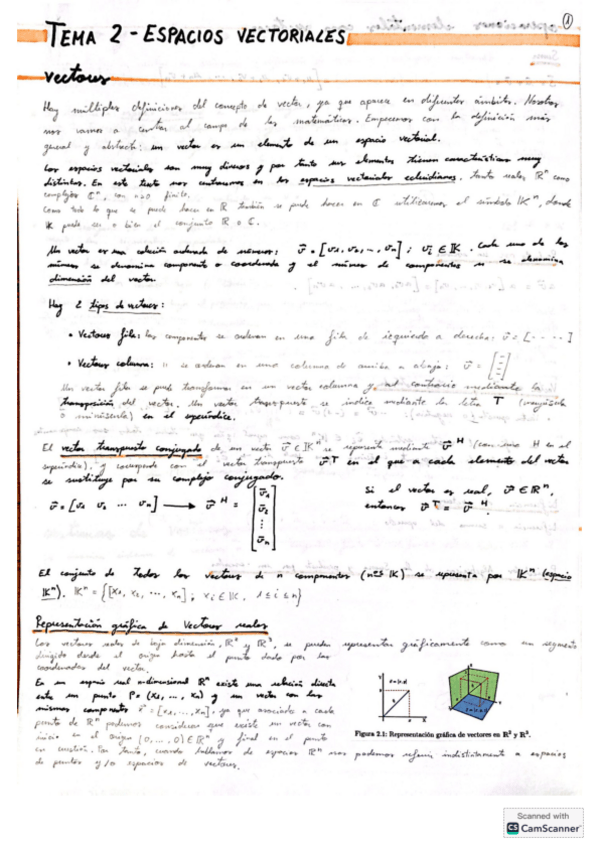 1
TEMA 2 - ESPACIOS VECTORIALES
Vectores
Hay múltiples definiciones del concepto de vector, ya que aparece en diferentes ámbitos. Nosotros
nos vamos a centrar al campo de las matemáticas. Empecemos con la definición más
general y abstracta: un vector es un elemento de un espacio vectorial.
Los espacios vectoriales son muy diversos y por tanto sus elementos tienen características muy
distintas. En este texto nos centraremos en los espacios vectoriales euclidianos, tanto reales ℝⁿ como
complejos ℂⁿ, con n>0 finito.
Como todo lo que se puede hacer en ℝ también se puede hacer en ℂ utilizaremos el símbolo 𝕂ⁿ, donde
𝕂 puede ser o bien el conjunto ℝ o ℂ.
Un vector es una colección ordenada de números: v⃗ = [v₁, v₂, ..., vₙ] ; vᵢ ∈ 𝕂. Cada uno de los
números se denomina componente o coordenada y el número de componentes n se denomina
dimensión del vector.
Hay 2 tipos de vectores:
• Vectores fila: las componentes se ordenan en una fila de izquierda a derecha: v⃗ = [- - - - -]
• Vectores columna: " se ordenan en una columna de arriba a abajo: v⃗ =
Un vector fila se puede transformar en un vector columna y al contrario mediante la
transposición del vector. Un vector transpuesto se indica mediante la letra T (mayúscula
o minúscula) en el superíndice.
El vector transpuesto conjugado de un vector v⃗ ∈ 𝕂ⁿ se representa mediante v⃗ᴴ (con una H en el
superíndice) y corresponde con el vector transpuesto v⃗ᵀ en el que a cada elemento del vector
se sustituye por su complejo conjugado.
v⃗ = [v₁ v₂ ... vₙ] ⟶ v⃗ᴴ = [v̄₁ v̄₂ ⋮ v̄ₙ]
Si el vector es real, v⃗ ∈ ℝⁿ,
entonces v⃗ᵀ = v⃗ᴴ.
El conjunto de todos los vectores de n componentes se representa por 𝕂ⁿ (espacio
𝕂ⁿ). 𝕂ⁿ = {[x₁, x₂, ..., xₙ] ; xᵢ ∈ 𝕂, 1 ≤ i ≤ n}
Representación gráfica de vectores reales
Los vectores reales de baja dimensión, ℝ² y ℝ³, se pueden representar gráficamente como un segmento
dirigido desde el origen hasta el punto dado por las
coordenadas del vector.
En un espacio real n-dimensional ℝⁿ existe una relación directa
entre un punto P = (x₁, ..., xₙ) y un vector con las
mismas componentes v⃗ = [x₁, ..., xₙ], ya que asociado a cada
punto de ℝⁿ podemos considerar que existe un vector con
inicio en el origen (0, ..., 0) ∈ ℝⁿ y final en el punto
en cuestión. Por tanto, cuando hablamos de espacios ℝⁿ nos podemos referir indistintamente a espacios
de puntos y/o espacios de vectores.
Figura 2.1: Representación gráfica de vectores en ℝ² y ℝ³.
Scanned with
CS CamScanner